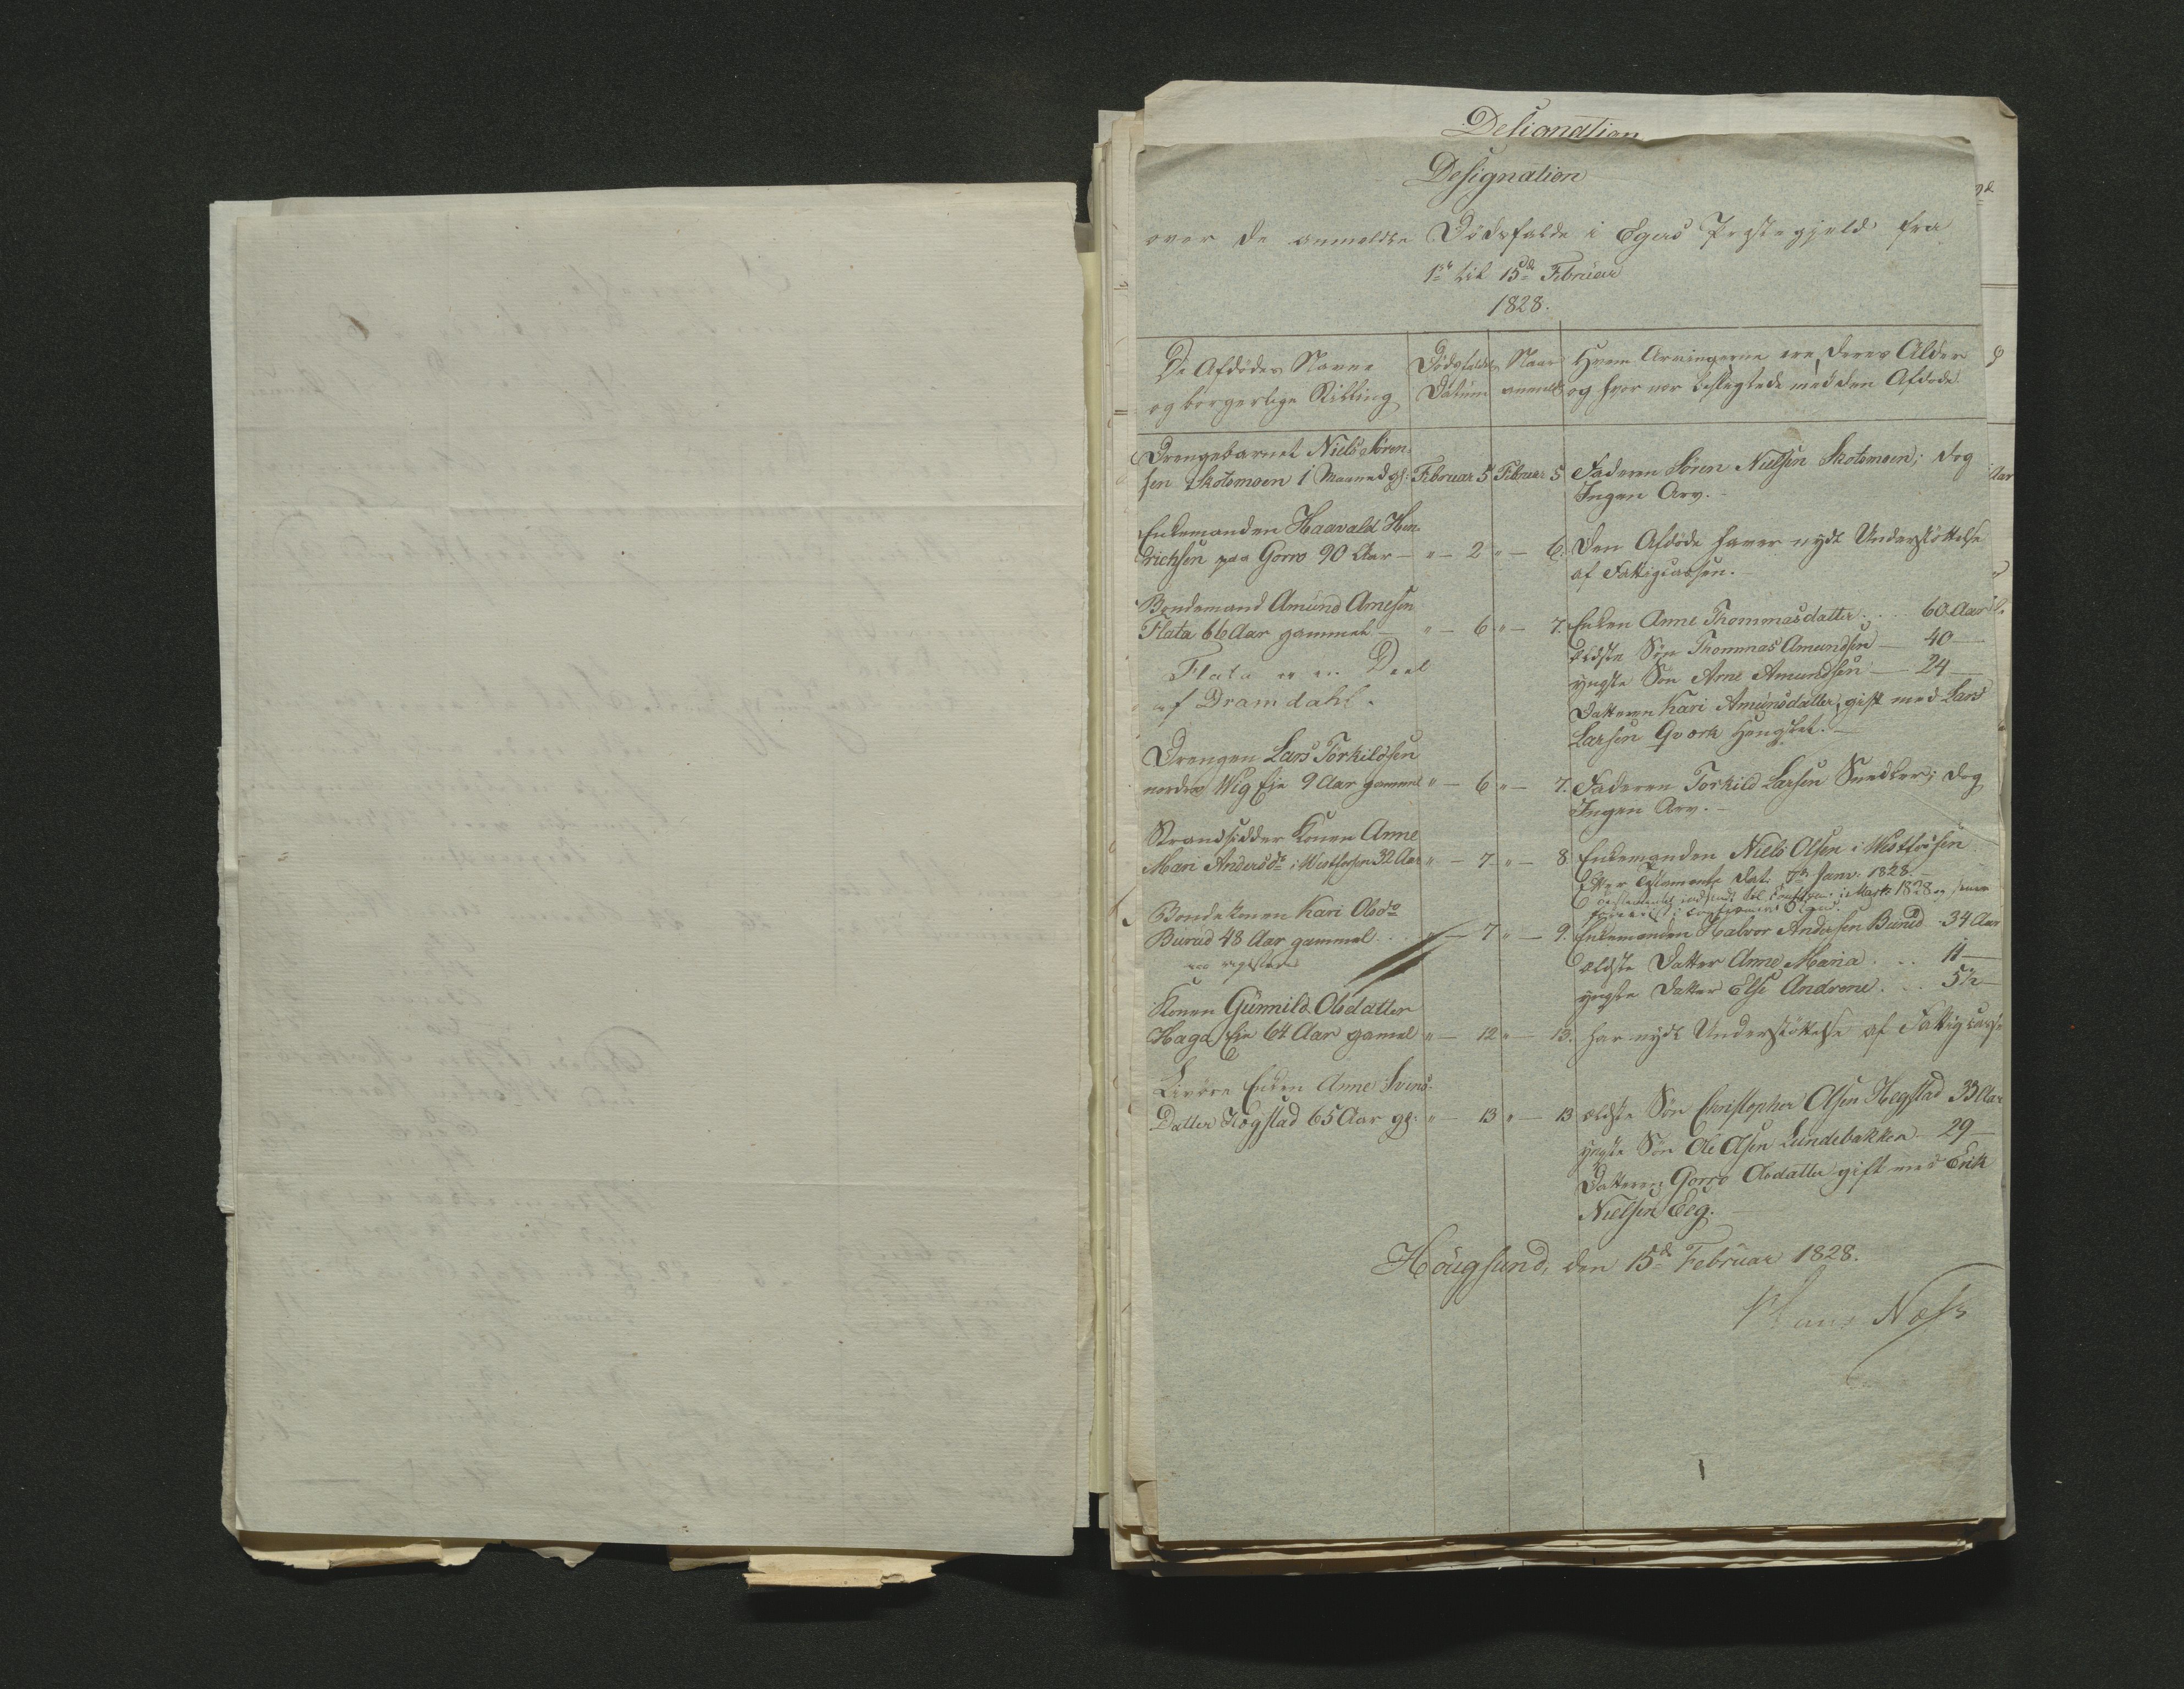 Designation
Designation
over de anmeldte Dödsfalde i Egers Præstegjeld fra
1ste til 15de Februar
1828.
De Afdödes Navne
og borgerlige Stilling
Dödsfaldets
Datum
Naar
anmeldt
Hvem Arvingerne ere, deres Alder
og hvor nær beslægtede med den Afdöde.
Drengebarnet Niels Sören-
sen Skotsmoen 1 Maaned gl: Februar 5 Februar 5
Faderen Sören Nielsen Skotsmoen; dog
Ingen Arv.
Enkemanden Haavald Hen-
drichsen paa Gorro 90 Aar — " — 2 " — 6.
Den Afdöde haver nydt Understöttelse
af Fattigcassen.
Bondemand Amund Arnesen
Flata 66 Aar gammel — " — 6 " — 7.
Flata er en Deel
af Dramdahl.
Enken Anne Thommasdatter . . 60 Aar
ældste Søn Thommas Amundsen — 40 —
yngste Søn Arne Amundsen — 24 —
Datteren Kari Amunsdatter, gift med Lars
Larsen Qværk
Drengen Lars Torkildsen
nordre Wig Eje 9 Aar gammel " — 6 " — 7.
Faderen Torkild Larsen Snedker; dog
Ingen Arv. —
Strandsidder Konen Anne
Mari Andersdr i Westfossen 32 Aar " — 7 " — 8
Enkemanden Niels Olsen i Westfossen
Efter Testamente dat. Janv. 1828. —
Testamentet indsendt til i Marts 1828 og
Bondekonen Kari Olsdr
Burud 48 Aar gammel . . . " — 7 " — 9.
registeret
Enkemanden Halvor Andersen Burud 34 Aar
ældste Datter Anne Maria . . . 11 —
yngste Datter Else Andrene . . . 5½ —
Konen Gunnild Olsdatter
Haga Eje 64 Aar gamel " — 12 " — 13.
har nydt Understöttelse af Fattigcasse
Enken Anne Svends-
Datter Hægstad 65 Aar gl: " — 13 " — 13
ældste Søn Christopher Olsen Hegstad 33 Aar
yngste Søn Ole Olsen Lundebakken — 29 —
Datteren: Gorro Olsdatter gift med Erik
Nielsen Eeg. —
Hougsund, den 15de Februar 1828.
Hans Næss